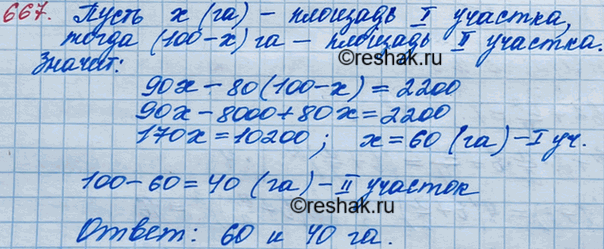 667. Пусть x (га) – площадь I участка,
тогда (100-x) га – площадь II участка.
Значит:
90x-80(100-x)=2200
90x-8000+80x=2200
170x=10200; x=60 (га)-I уч.
100-60=40 (га)-II участок
Ответ: 60 и 40 га.
©reshak.ru
©reshak.ru
©reshak.ru